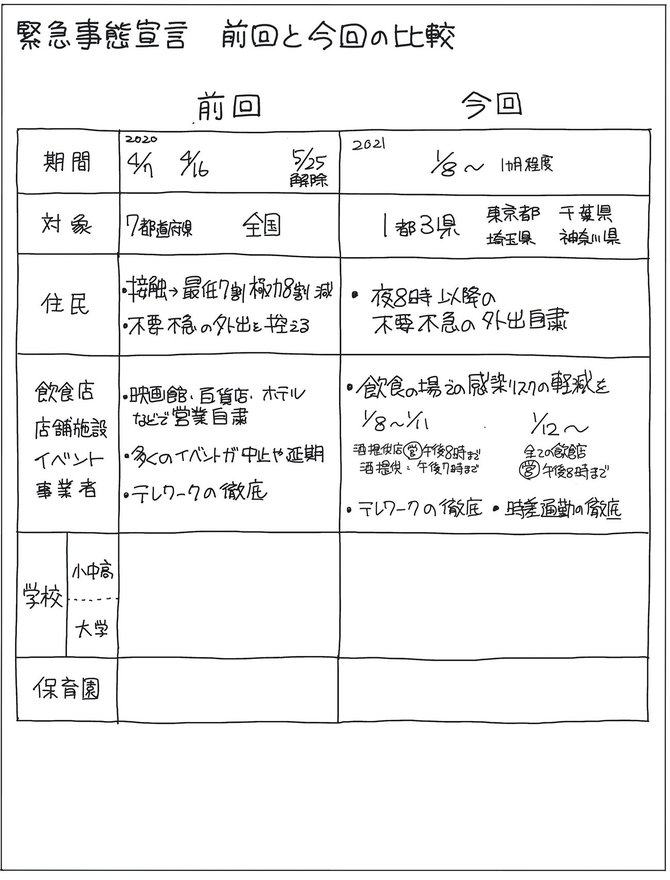 緊急事態宣言 前回と今回の比較
前回 今回
期間
2020
4/7 4/16 5/25
解除
2021
1/8～ 1カ月程度
対象
7都道府県 全国
1都3県 東京都 千葉県
埼玉県 神奈川県
住民
・接触→最低7割 極力8割減
・不要不急の外出を控える
・夜8時以降の
不要不急の外出自粛
飲食店
店舗施設
イベント
事業者
・映画館、百貨店、ホテル
などで営業自粛
・多くのイベントが中止や延期
・テレワークの徹底
・飲食の場での感染リスクの軽減を
1/8～1/11 1/12～
酒提供店営午後8時まで
酒提供：午後7時まで
全ての飲食店
営午後8時まで
・テレワークの徹底 ・時差通勤の徹底
学校
小中高
大学
保育園